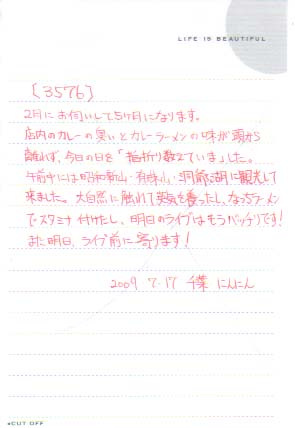 LIFE IS BEAUTIFUL
[3576]
2月にお伺いして5ヶ月になります。
店内のカレーの臭いとカレーラーメンの味が頭から
離れず、今日の日を「指折り数えていました。
午前中には昭和新山・有珠山・洞爺湖に観光して
来ました。大自然に触れて英気を養ったし、なっちラーメン
でスタミナ付けたし、明日のライブはもうバッチリです!
また明日、ライブ前に寄ります!
2009 7.17 千葉 にんにん
◂CUT OFF